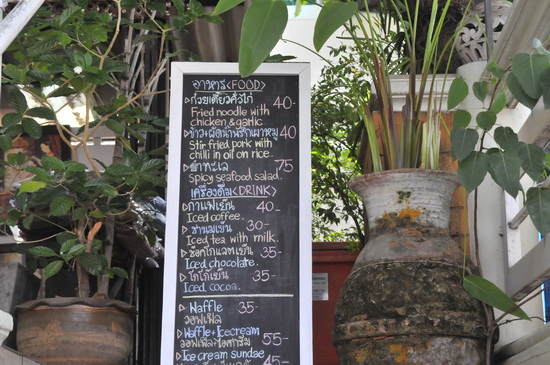 อาหาร <FOOD>
ก๋วยเตี๋ยวคั่วไก่ 40-
Fried noodle with
chicken & garlic
ข้าว+ผัดน้ำพริกเผาหมู 40
Stir fried pork with
chilli in oil on rice.
ยำทะเล 75
Spicy seafood salad.
เครื่องดื่ม <DRINK>
กาแฟเย็น 40-
Iced coffee.
ชานมเย็น 30-
Iced tea with milk.
ช็อกโกแลทเย็น 35-
Iced chocolate.
โกโก้เย็น 35-
Iced cocoa.
Waffle 35-
วอฟเฟิล
Waffle+Icecream 55-
วอฟเฟิล+ไอศกรีม
Ice cream sundae 45-